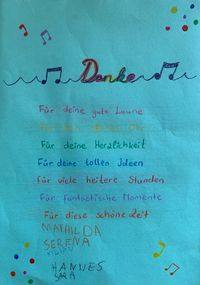 Danke
Für deine gute Laune
Für dein
Für deine Herzlichkeit
Für deine tollen Ideen
Für viele heitere Stunden
Für fantastische Momente
Für diese schöne Zeit
MATHILDA
SERENA
HANNES